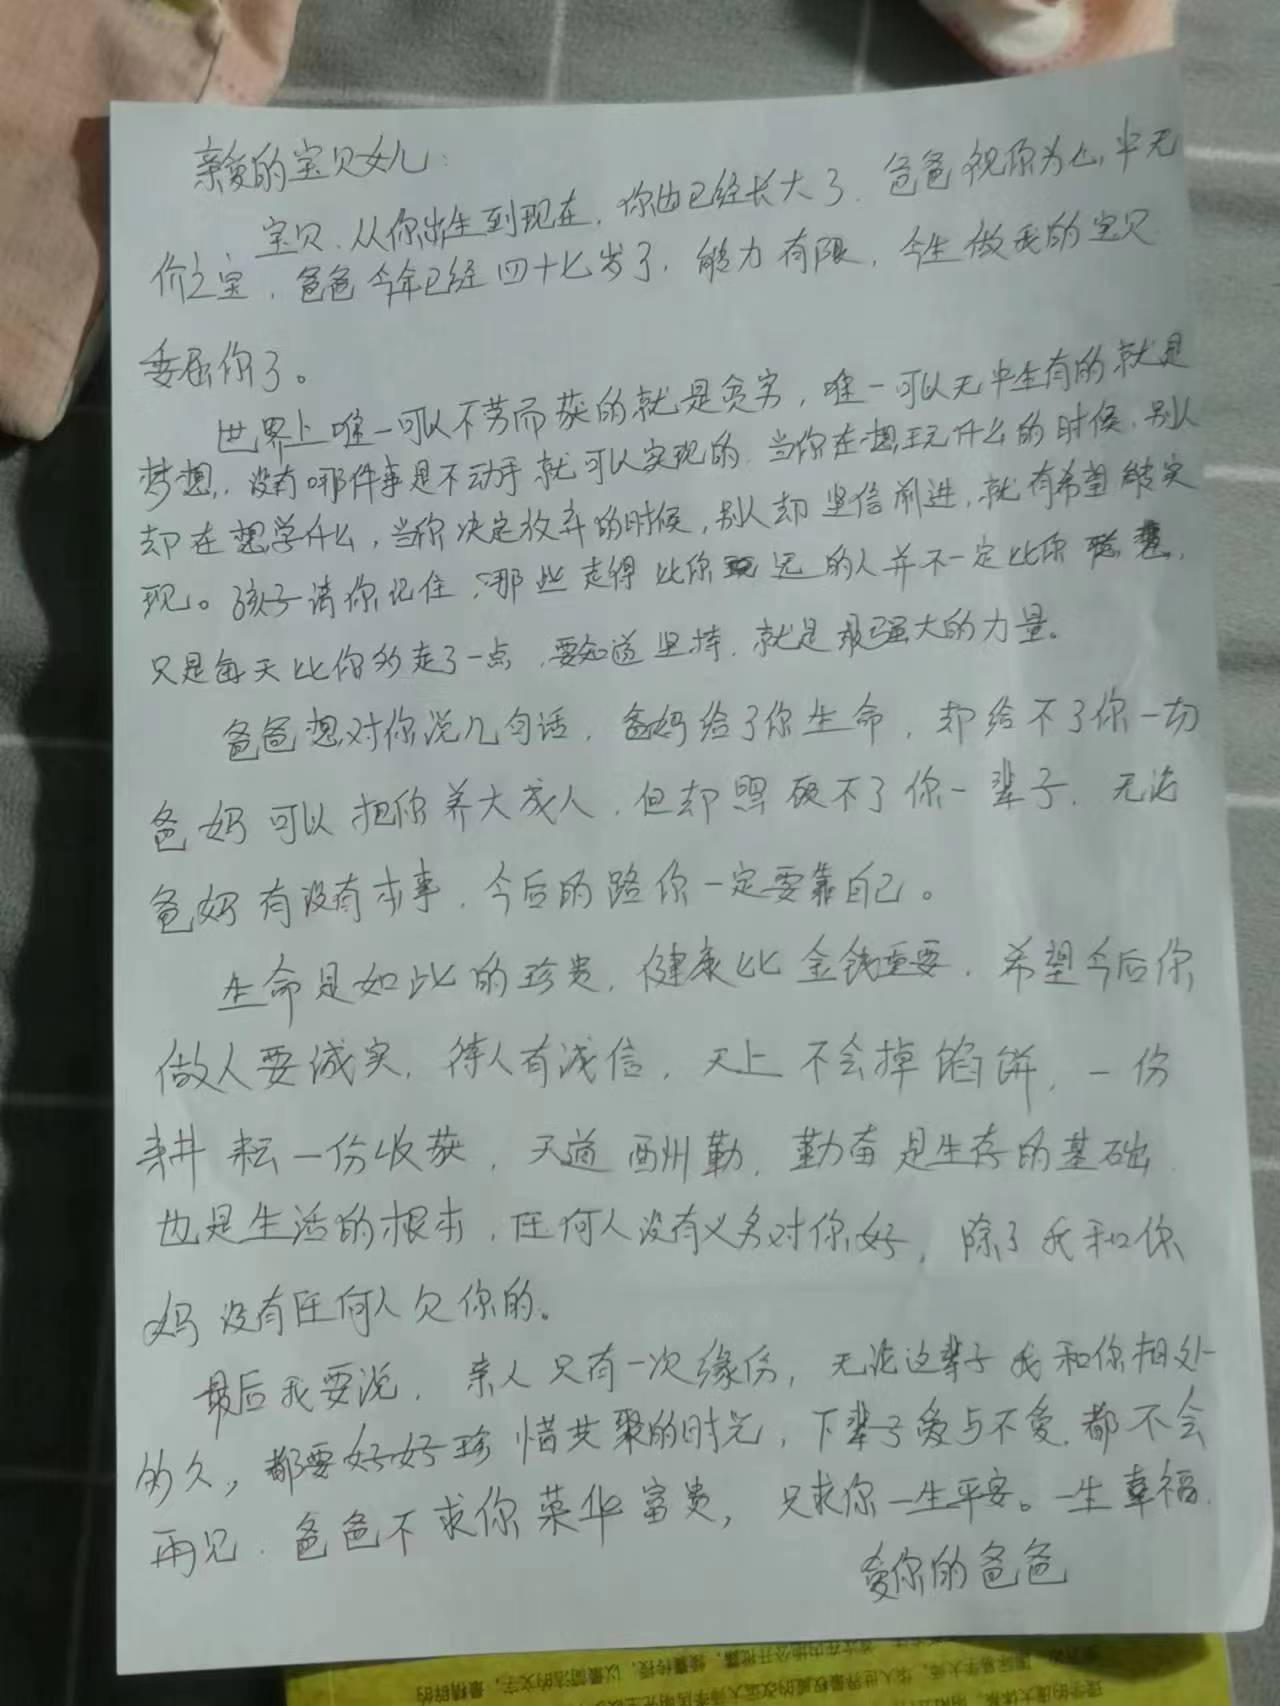 亲爱的宝贝女儿:
宝贝.从你出生到现在,你也已经长大了.爸爸视你为心中无
价之宝,爸爸今年已经四十七岁了,能力有限,今生做我的宝贝
委屈你了。
世界上唯一可以不劳而获的就是贫穷,唯一可以无中生有的就是
梦想,没有哪件事是不动手就可以实现的.当你在想玩什么的时候,别人
却在想学什么,当你决定放弃的时候,别人却坚信前进,就有希望能实
现。孩子请你记住,那些走得比你远的人并不一定比你聪慧,
只是每天比你多走了一点,要知道坚持,就是最强大的力量。
爸爸想对你说几句话,爸妈给了你生命,却给不了你一切
爸妈可以把你养大成人,但却照顾不了你一辈子,无论
爸妈有没有本事,今后的路你一定要靠自己。
生命是如此的珍贵,健康比金钱重要,希望今后你
做人要诚实,待人有诚信,天上不会掉馅饼,一份
耕耘一份收获,天道酬勤,勤奋是生存的基础
也是生活的根本,任何人没有义务对你好,除了我和你
妈没有任何人欠你的。
最后我要说,亲人只有一次缘份,无论这辈子我和你相处
多久,都要好好珍惜共聚的时光,下辈子爱与不爱,都不会
再见.爸爸不求你荣华富贵,只求你一生平安。一生幸福.
爱你的爸爸